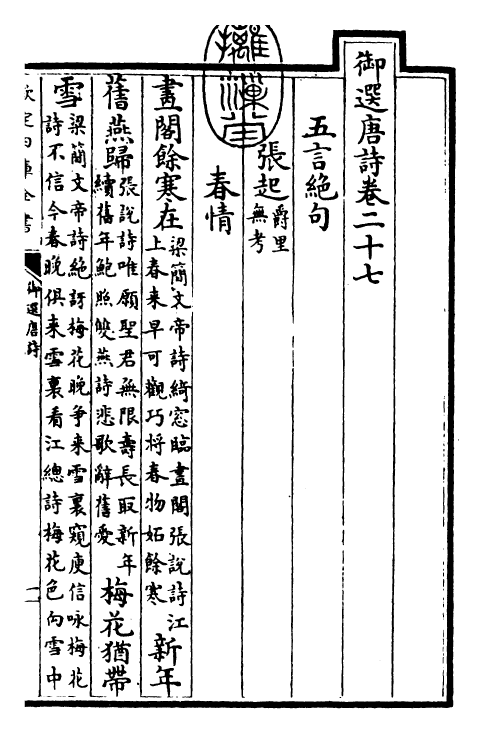 御選唐詩卷二十七
五言絶句
張起爵里無考
春情
畫閣餘寒在梁簡文帝詩綺窓臨畫閣張說詩江上春来早可觀巧將春物妬餘寒新年
舊燕歸張說詩唯願聖君無限壽長取新年續舊年鮑照䨇燕詩悲歌辭舊愛梅花猶帶
雪梁簡文帝詩絶訝梅花晚爭来雪裏窺庾信咏梅花詩不信今春晚俱来雪裏看江總詩梅花色向雪中
御選唐詩
一